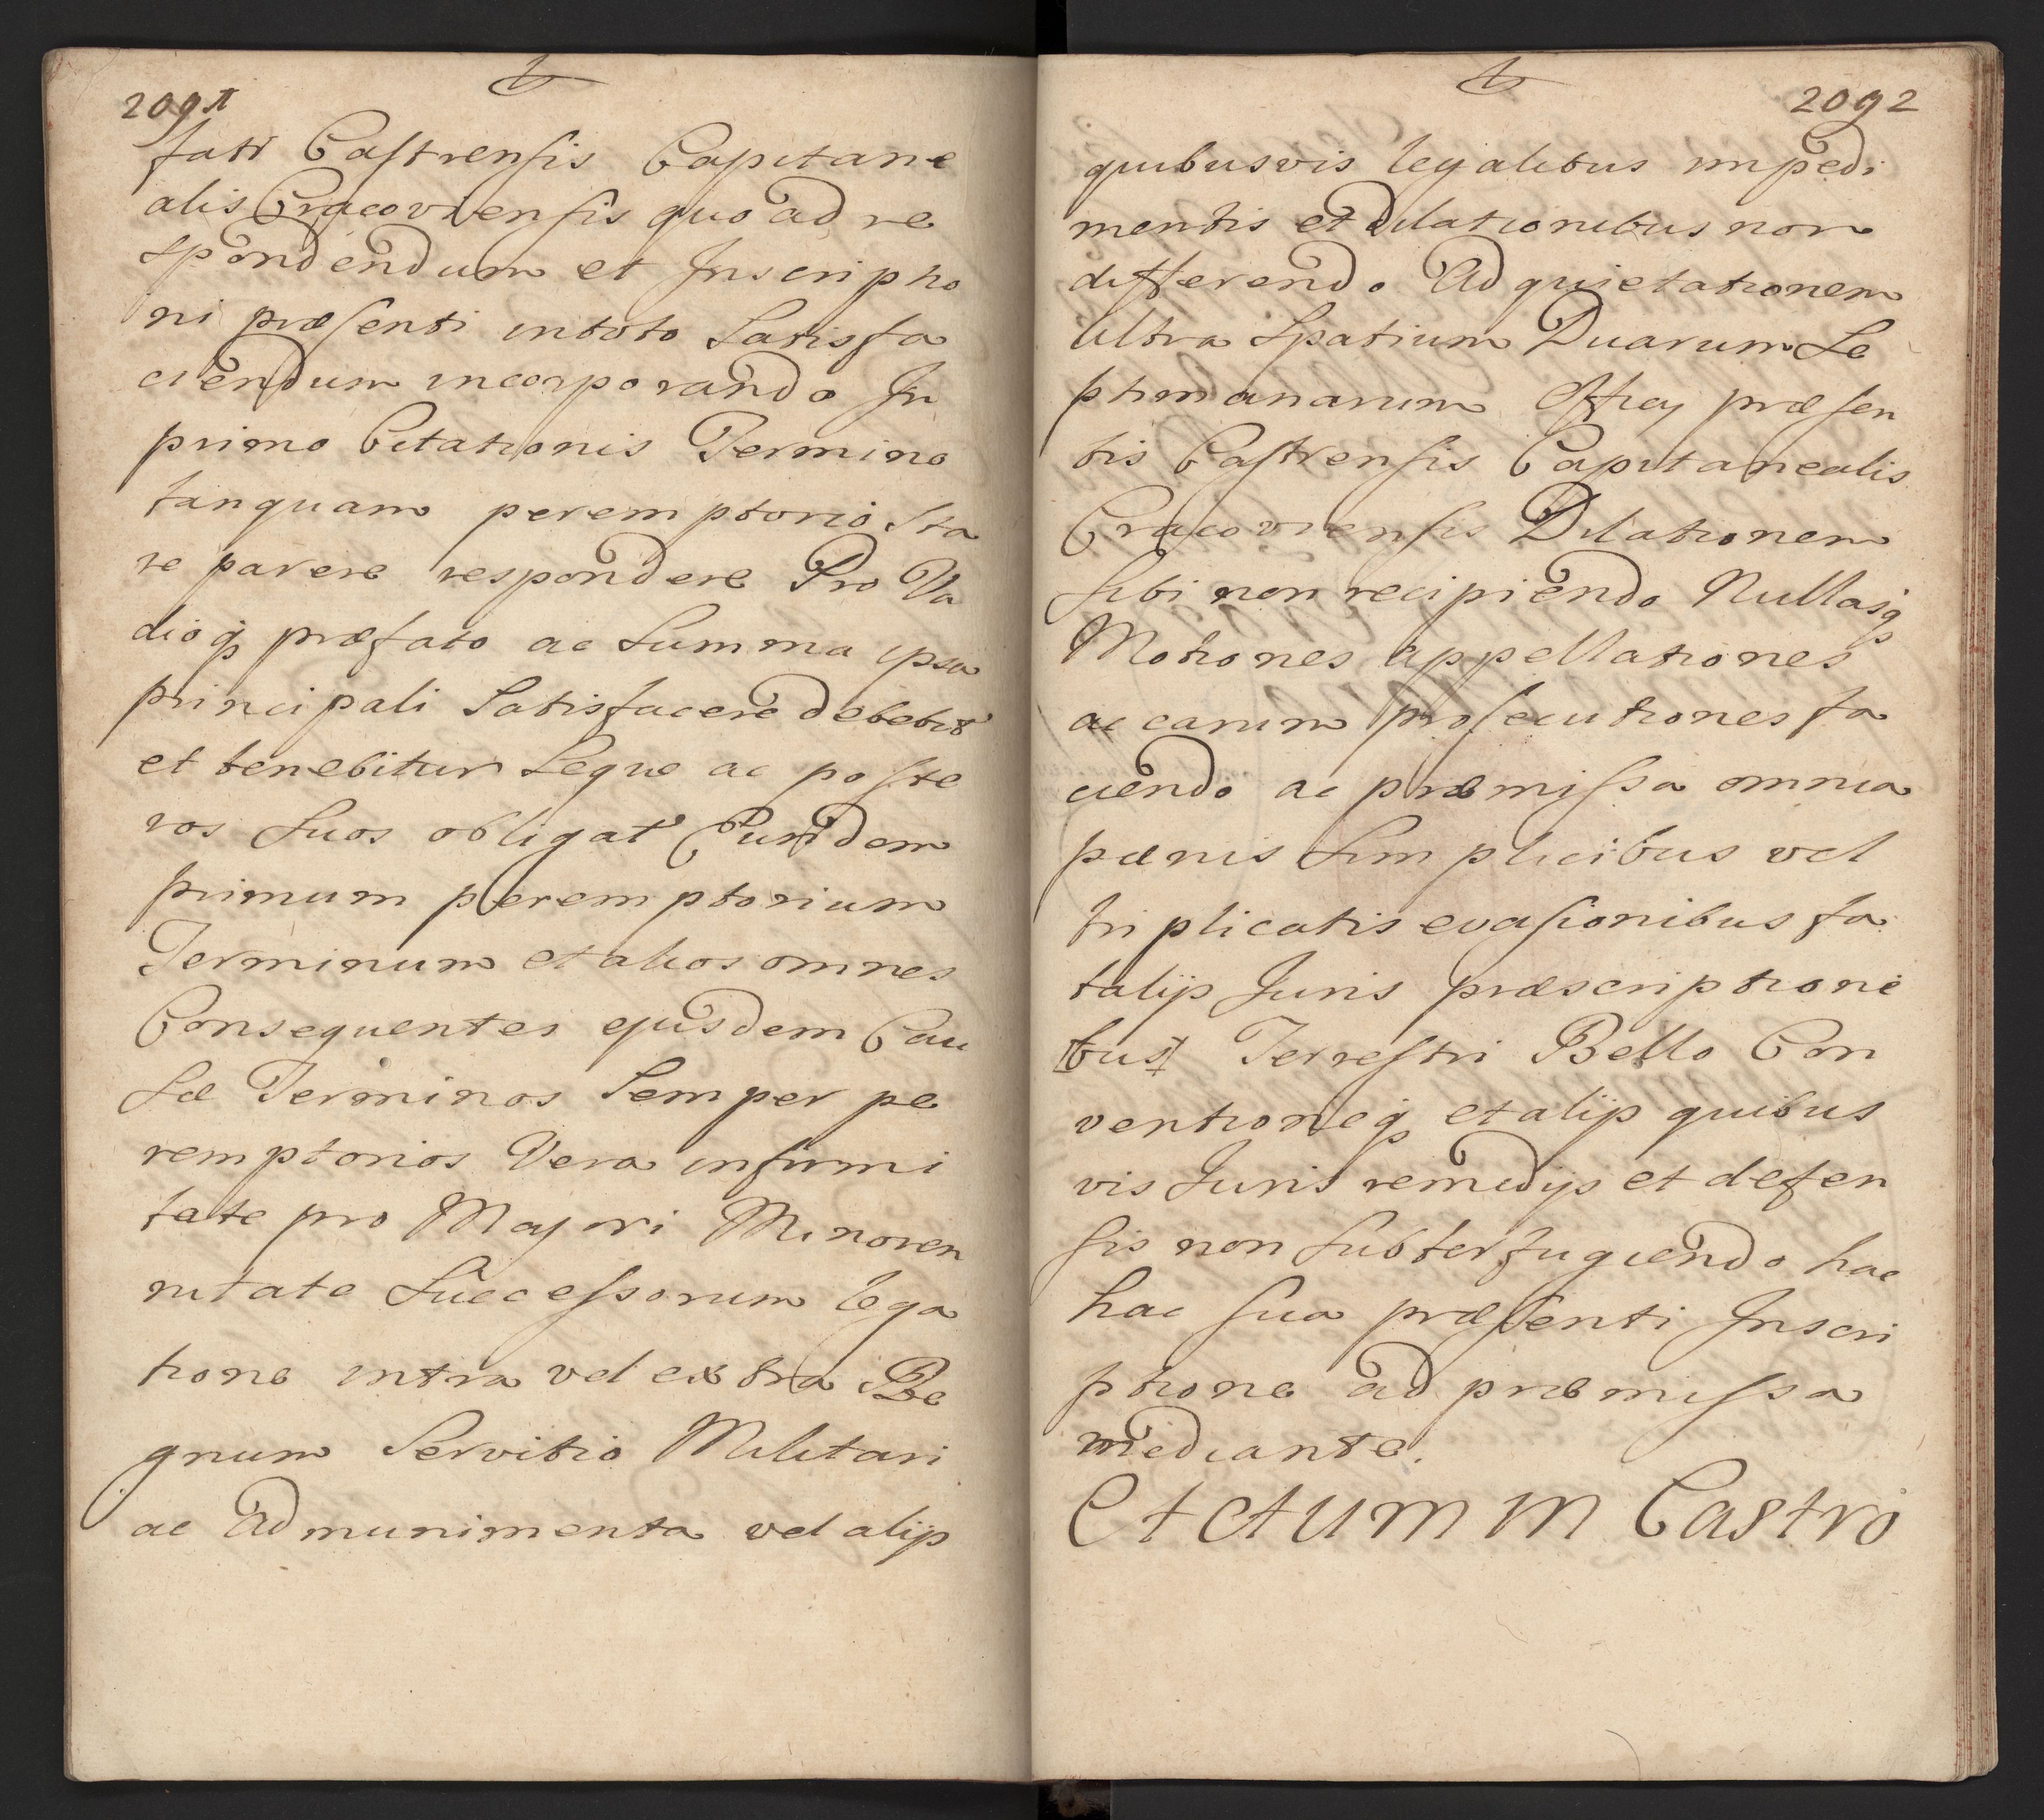 2091
fati Castrensis Capitane
alis Cracoviensis quo ad re
spondendum et Inscriptio
ni præsenti in toto Satisfa
ciendum incorporando In
primo Citationis Termino
tanquam peremptorio Sta
re parere respondere Pro Va
dioq præfato ac Summa ipsa
principali Satisfacere debebit
et tenebitur Seque ac poste
ros Suos obligat Eundem
primum peremptorium
Terminum et alios omnes
Consequentes ejusdem Cau
sæ Terminos Semper pe
remptorios Vera infirmi
tate pro Majori Minoren
nitate Successorum lega
tione intra vel extra Re
gnum Servitio Militari
ac Ad munimenta vel alijs
2092
quibusvis legalibus impedi
mentis et Dilationibus non
differendo Ad quietationem
Ultra Spatium Duarum Se
ptimanarum Officij præsen
tis Castrensis Capitanealis
Cracoviensis Dilationem
Sibi non recipiendo Nullasq
Motiones appellationes
ac earum prosecutiones fa
ciendo ac præmissa omnia
pænis Simplicibus vel
triplicatis evasionibus fa
talijs Juris præscriptioni
bus Terrestri Bello Con
ventioneq et alijs quibus
vis Juris remedijs et defen
sis non Subterfugiendo hac
hac sua præsenti Inscri
ptione ad præmissa
mediante.
Actum in Castro